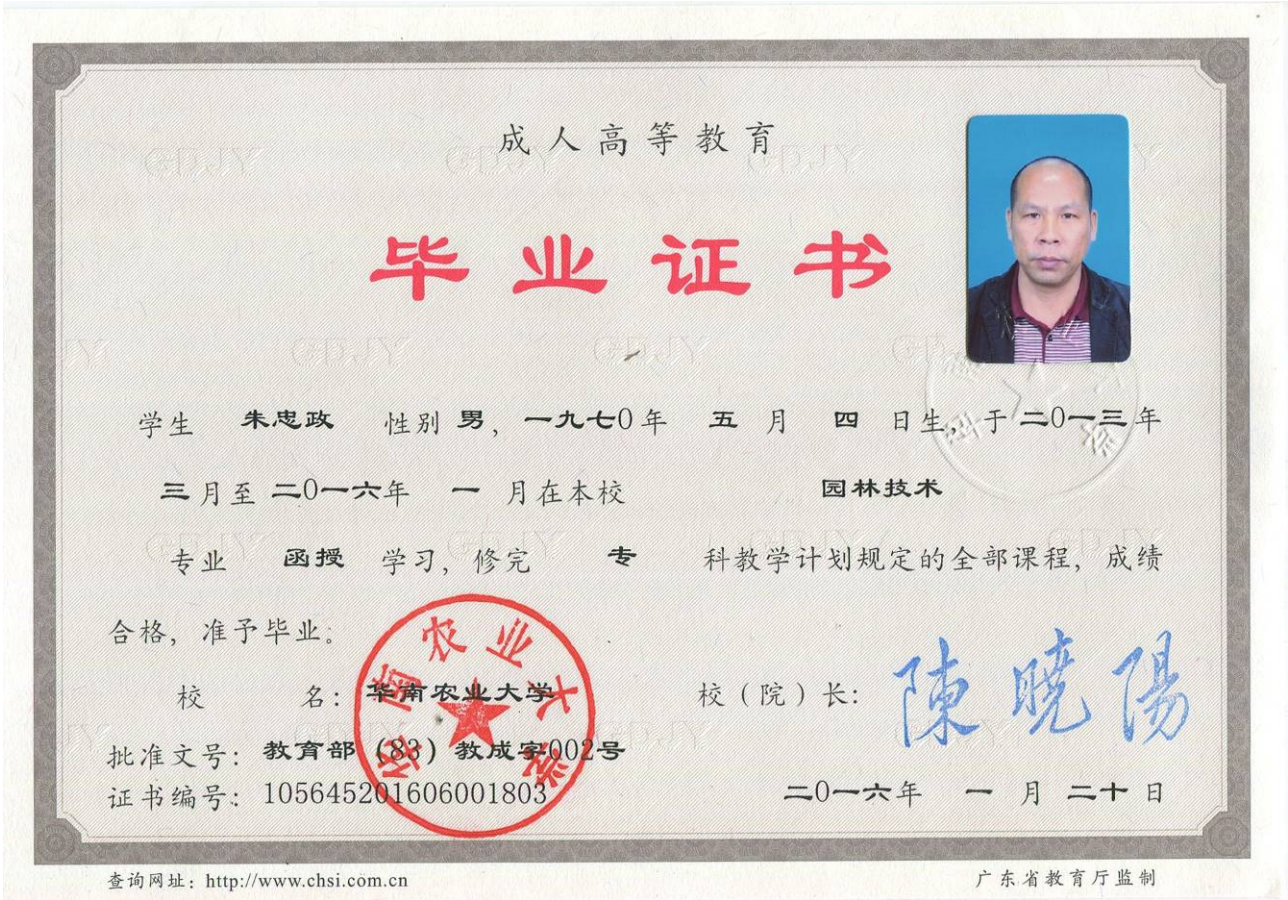 成人高等教育
毕业证书
学生 朱忠政 性别 男，一九七0年 五 月 四 日生，于二0一三年
三月至二0一六年 一 月在本校 园林技术
专业 函授 学习，修完 专 科教学计划规定的全部课程，成绩
合格，准予毕业。
校 名：华南农业大学 校（院）长：陳曉陽
批准文号：教育部（83）教成字002号
证书编号：105645201606001803 二0一六年 一 月 二十日
华南农业大学
查询网址：http://www.chsi.com.cn 广东省教育厅监制
GDJY